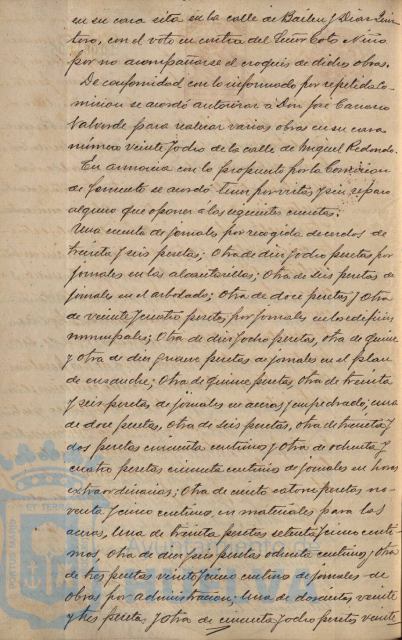 en su casa sita en la calle de Bailen y Diaz Quin
tero, con el voto en contra del Señor Coto Niño
por no acompañarse el croquis de dichas obras.
De conformidad con lo informado por repetida Co-
mision se acordó autorizar á Don José Carrasco
Valverde para realizar varias obras en su casa
número veinte y ocho de la calle de Miguel Redondo.
En armonia con lo propuesto por la Comision
de fomento se acordó tener por vistas y sin reparo
alguno que oponer á las siguientes cuentas:
Una cuenta de jornales por recogida de cerdos de
treinta y seis pesetas; Otra de diez y ocho pesetas por
jornales en las alcantarillas; Otra de seis pesetas de
jornales en el arbolado; Otra de doce pesetas, y Otra
de veinte y cuatro pesetas, por jornales en los edificios
municipales; Otra de diez y ocho pesetas, otra de quince
y otra de diez y nueve pesetas de jornales en el plan
de ensanche; Otra de quince pesetas otra de treinta
y seis pesetas de jornales en aceras y empedrado; una
de doce pesetas, otra de seis pesetas, otra de treinta y
dos pesetas cincuenta centimos y Otra de ochenta y
cuatro pesetas cincuenta centimos de jornales en horas
extraordinarias; Otra de ciento catorce pesetas no-
venta y cinco centimos, en materiales para las
aceras, Una de treinta pesetas setenta y cinco centi-
mos, Otra de diez y seis pesetas ochenta centimos y Otra
de tres pesetas veinte y cinco centimos de jornales de
obras por administracion; Una de doscientas veinte
y tres pesetas y otra de cincuenta y ocho pesetas veinte
PORTUS MARIS ET TERRAE